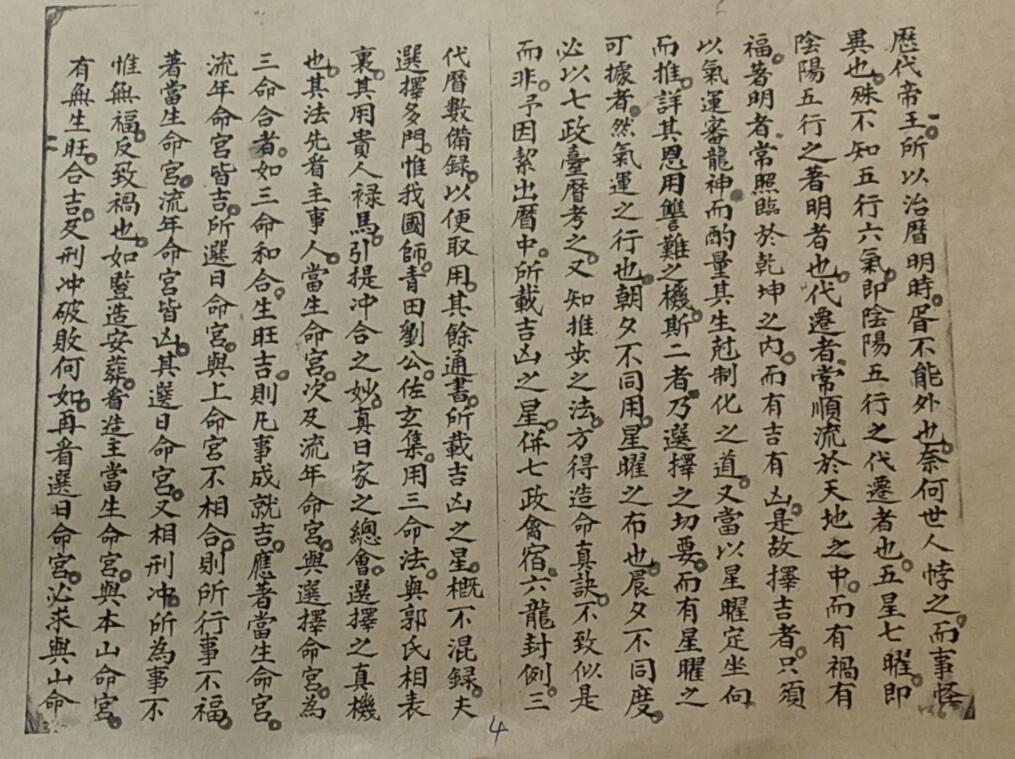 歷代帝王所以治曆明時。胥不能外也。奈何世人悖之。而事怪
異也。殊不知五行六氣。即陰陽五行之代遷者也。五星七曜。即
陰陽五行之著明者也。代遷者。常順流於天地之中。而有禍有
福。著明者。常照臨於乾坤之內。而有吉有凶。是故擇吉者。只須
以氣運審龍神。而酌量其生尅制化之道。又當以星曜定坐向
而推。詳其恩用讐難之機。斯二者。乃選擇之切要。而有星曜之
可據者。然氣運之行也。朝夕不同用。星曜之布也。晨夕不同度。
必以七政臺曆考之。又知推步之法。方得造命真訣。不致似是
而非。予因絜出曆中。所載吉凶之星。併七政禽宿。六龍封例。三
代曆數備録。以便取用。其餘通書。所載吉凶之星。概不混録。夫
選擇多門。惟我國師。青田劉公。佐玄集。用三命法。與郭氏相表
裏。其用貴人祿馬。引提冲合之妙。真日家之總會。選擇之真機
也。其法先看主事人。當生命宮。次及流年命宮。與選擇命宮。為
三命合者。如三命和合。生旺吉。則凡事成就吉應。著當生命宮。
流年命宮皆吉。所選日命宮。與上命宮不相合。則所行事不福。
著當生命宮。流年命宮皆凶。其選日命宮。又相刑冲。所為事不
惟無福。反致禍也。如豎造安葬。看造主當生命宮。與本山命宮。
有無生旺。合吉。及刑冲破敗何如。再看選日命宮。必求與山命
4